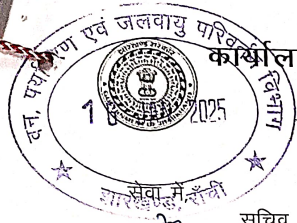 वन, पर्यावरण एवं जलवायु परिवर्तन विभाग
कार्याल
झारखण्ड सरकार
1
2025
झारखण्ड, राँची
सेवा में,
सचिव